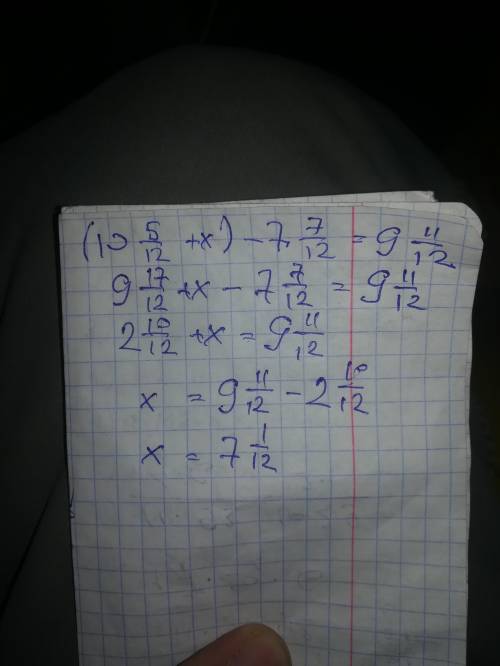 (10 5/12 + x) - 7 7/12 = 9 11/12
9 17/12 + x - 7 7/12 = 9 11/12
2 10/12 + x = 9 11/12
x = 9 11/12 - 2 10/12
x = 7 1/12